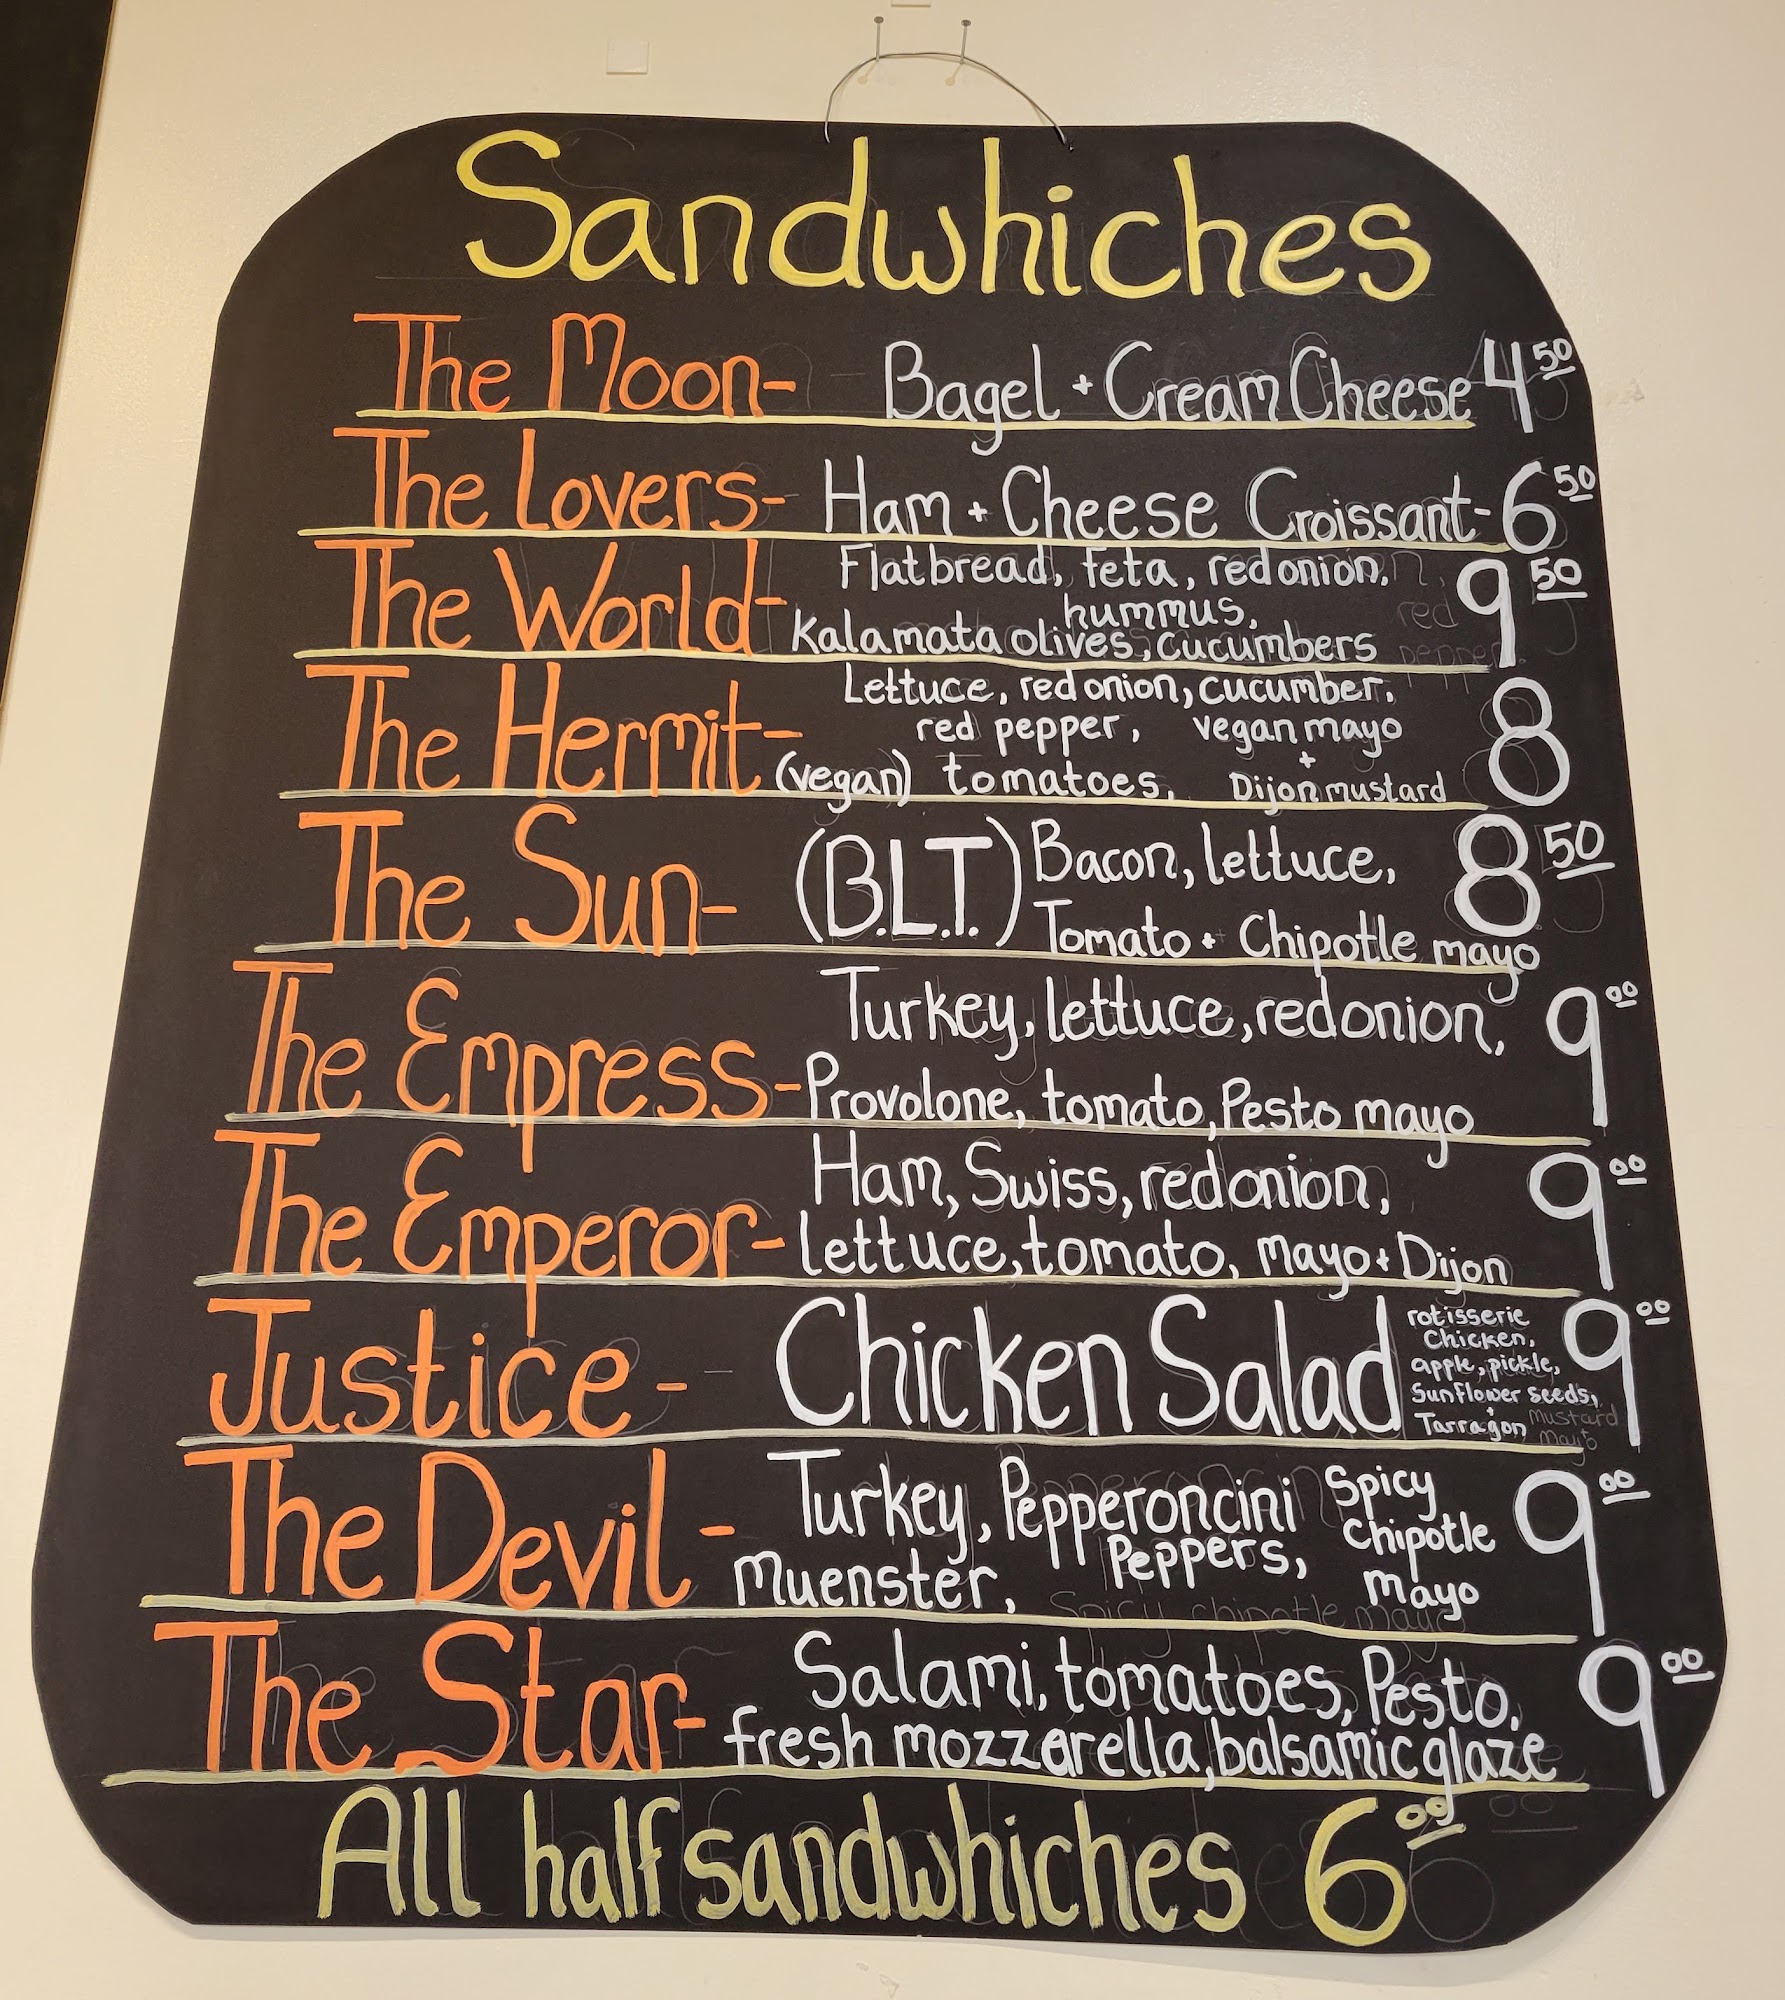 Sandwhiches
The Moon- Bagel + Cream Cheese 4 50
The Lovers- Ham + Cheese Croissant- 6 50
The World- Flatbread, feta, red onion, 9 50
hummus,
Kalamata olives, cucumbers
The Hermit- Lettuce, red onion, cucumber, 8
red pepper, vegan mayo
+
(vegan) tomatoes, Dijon mustard
The Sun- (B.L.T.) Bacon, lettuce, 8 50
Tomato + Chipotle mayo
The Empress- Turkey, lettuce, red onion, 9 00
Provolone, tomato, Pesto mayo
The Emperor- Ham, Swiss, red onion, 9 00
lettuce, tomato, mayo + Dijon
Justice - Chicken Salad 9 00
rotisserie
Chicken,
apple, pickle,
Sunflower seeds,
+
Tarragon mustard
mayo
The Devil - Turkey, Pepperoncini Spicy 9 00
Peppers, Chipotle
Muenster, mayo
Spicy chipotle mayo
The Star- Salami, tomatoes, Pesto, 9 00
fresh mozzarella, balsamic glaze
All half sandwhiches 6 00